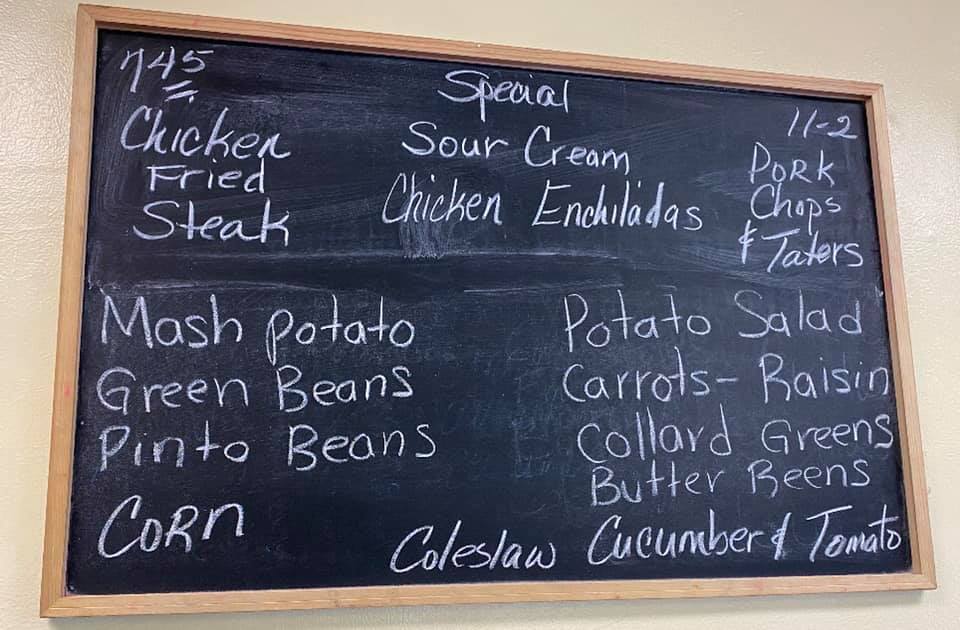 745
Chicken
Fried
Steak
Special
Sour Cream
Chicken Enchiladas
11-2
Pork
Chops
& Taters
Mash potato
Green Beans
Pinto Beans
Corn
Potato Salad
Carrots- Raisin
Collard Greens
Butter Beens
Coleslaw Cucumber & Tomato